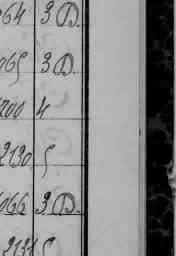 064 3 D.
065 3 D.
200 4
2130 5
066 3 D.
2131 5